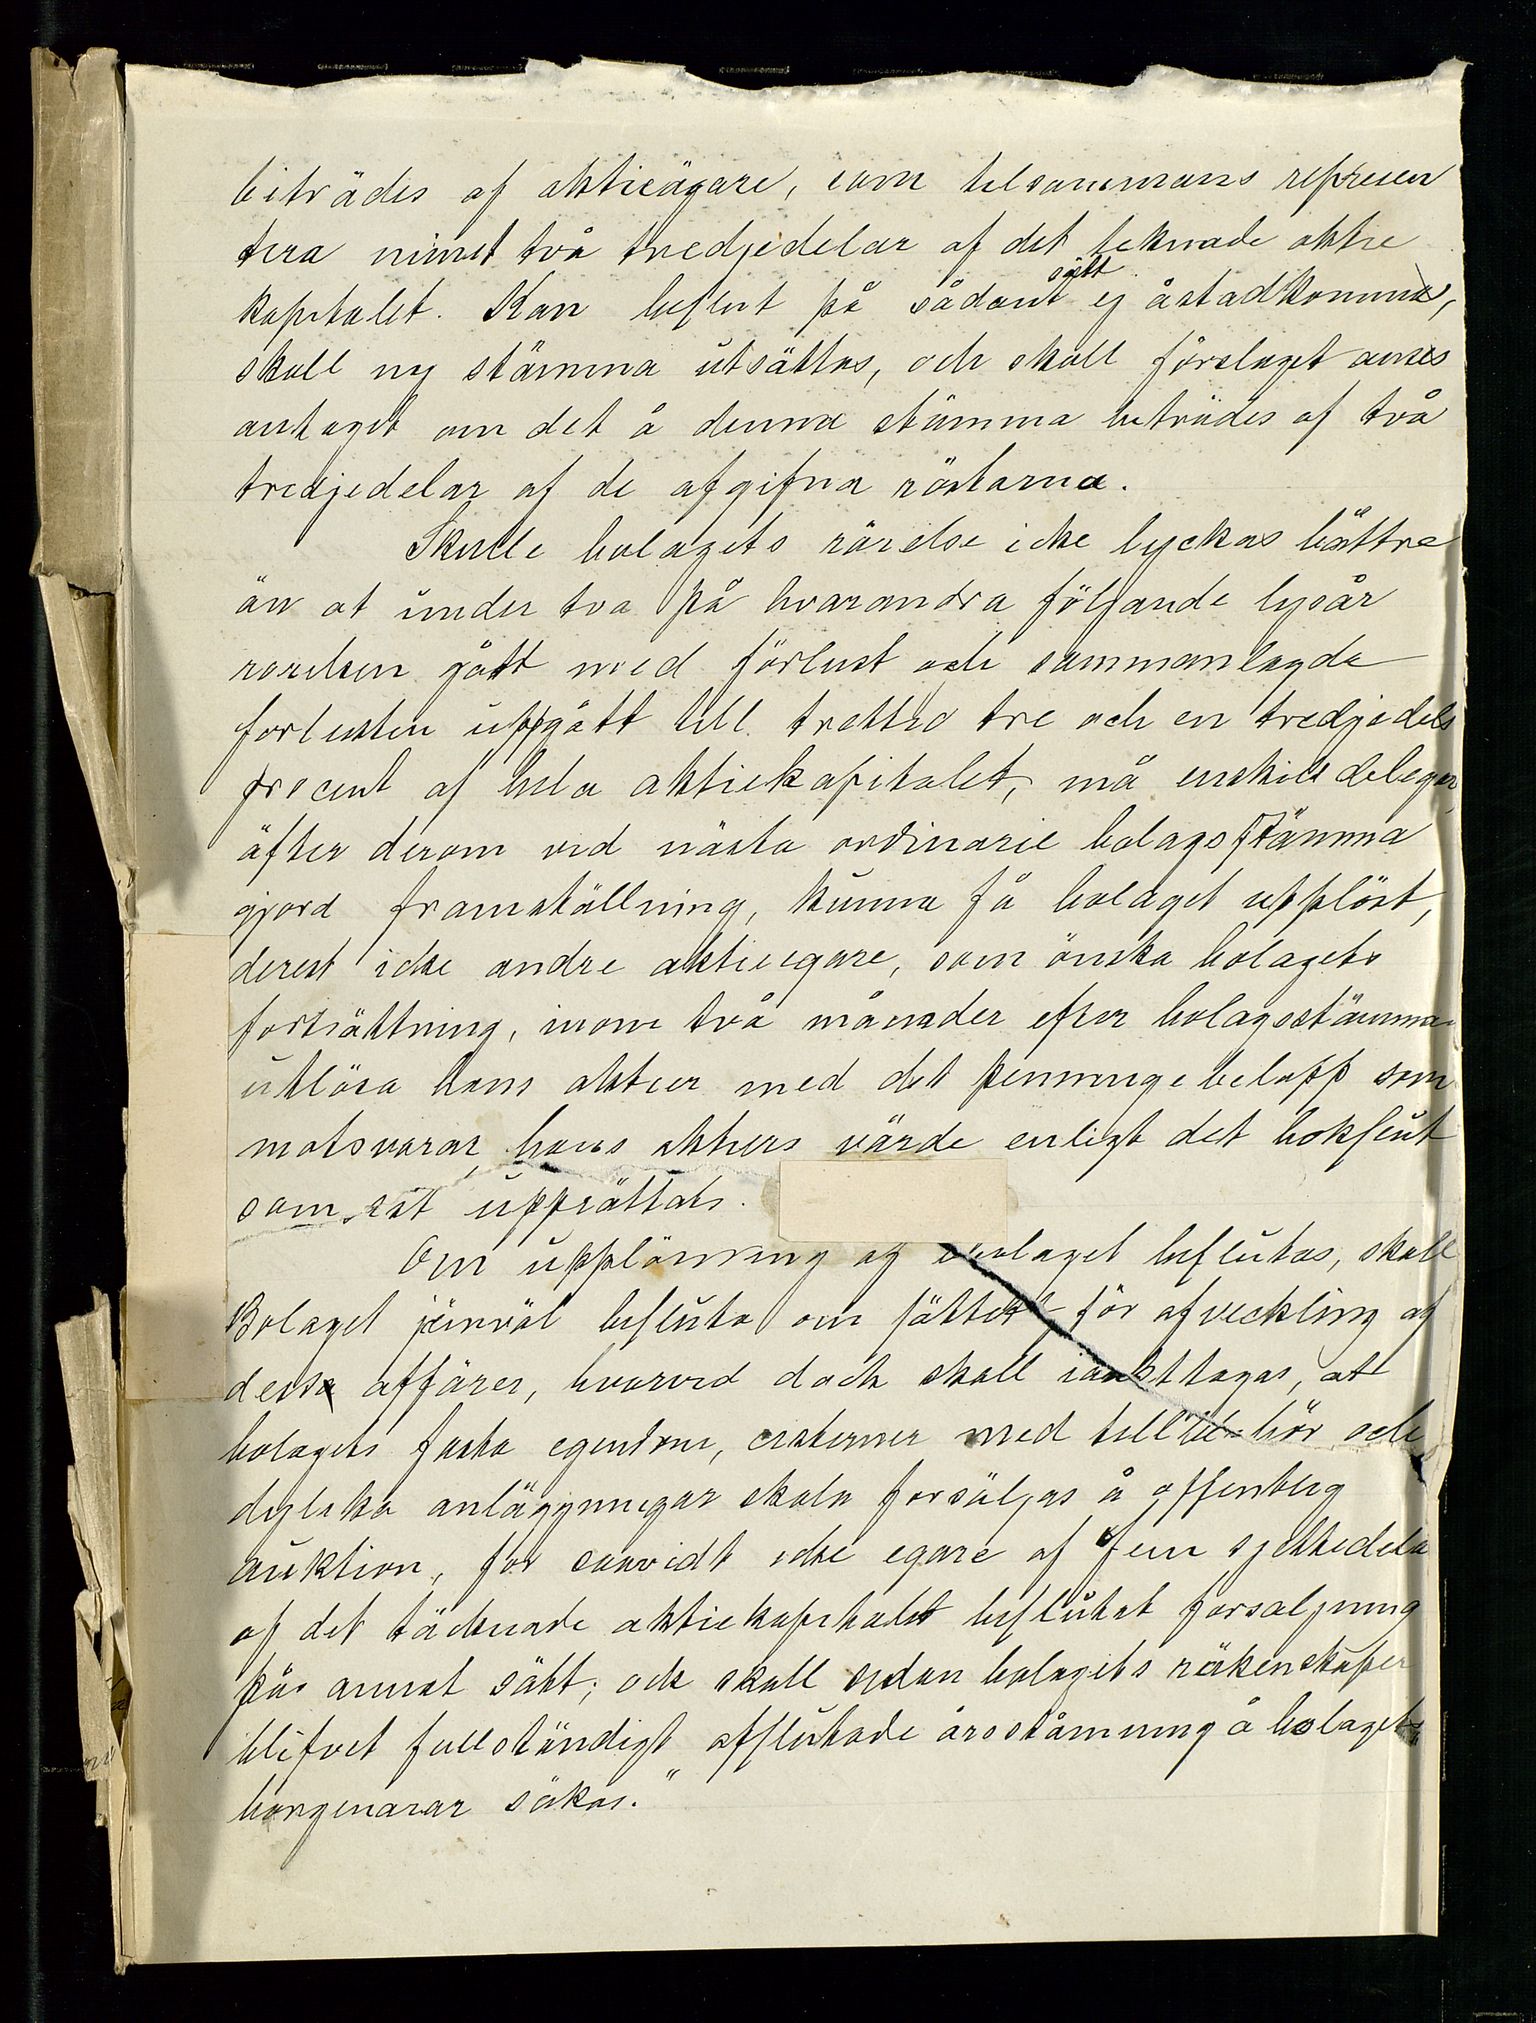 biträdes af aktieägare, som tilsammans represen
tera minst två tredjedelar af det teknade aktie
kapitalet. Kan beslut på sådant sätt ej åstadkomma,
skall ny stämma utsättas, och skall förslaget anses
antaget om det å denna stämma biträdes af två
tredjedelar af de afgifna rösterna.
Skulle bolagets rörelse icke lyckas bättre
än at under tva på hvarandra följande lysår
rorelsen gått med förlust och sammanlagda
forlusten uppgått till trettio tre och en tredjedels
procent af hela aktiekapitalet, må enskild delegar,
äfter derom vid nästa ordinarie bolagsstämma
gjord framställning, kunna få bolaget upplöst,
derest icke andre aktieegare, som önska bolagets
fortsättning, inom två månader efter bolagsstämma
utlösa hans aktier med det penningebelopp som
motsvarar hans aktiers värde enligt det bokslut
som sist upprättats.
Om upplösning af bolaget beslutas, skall
Bolaget jämväl besluta om sättet för afveckling af
dessa affärer, hvarvid dock skall iakttagas, at
bolagets fasta egendom, cisterner med tillbehör och
dyliska anläggningar skola forsäljas å offenblig
auktion, for savvidt icke egare af fem sjettedela
af det täcknade aktiekapitalet beslutat forsaljning
på annat sätt; och skall sedan bolagets räkenskaper
blifvet fullständigt afslutade årsstämning å bolagets
borgenarar sökas."